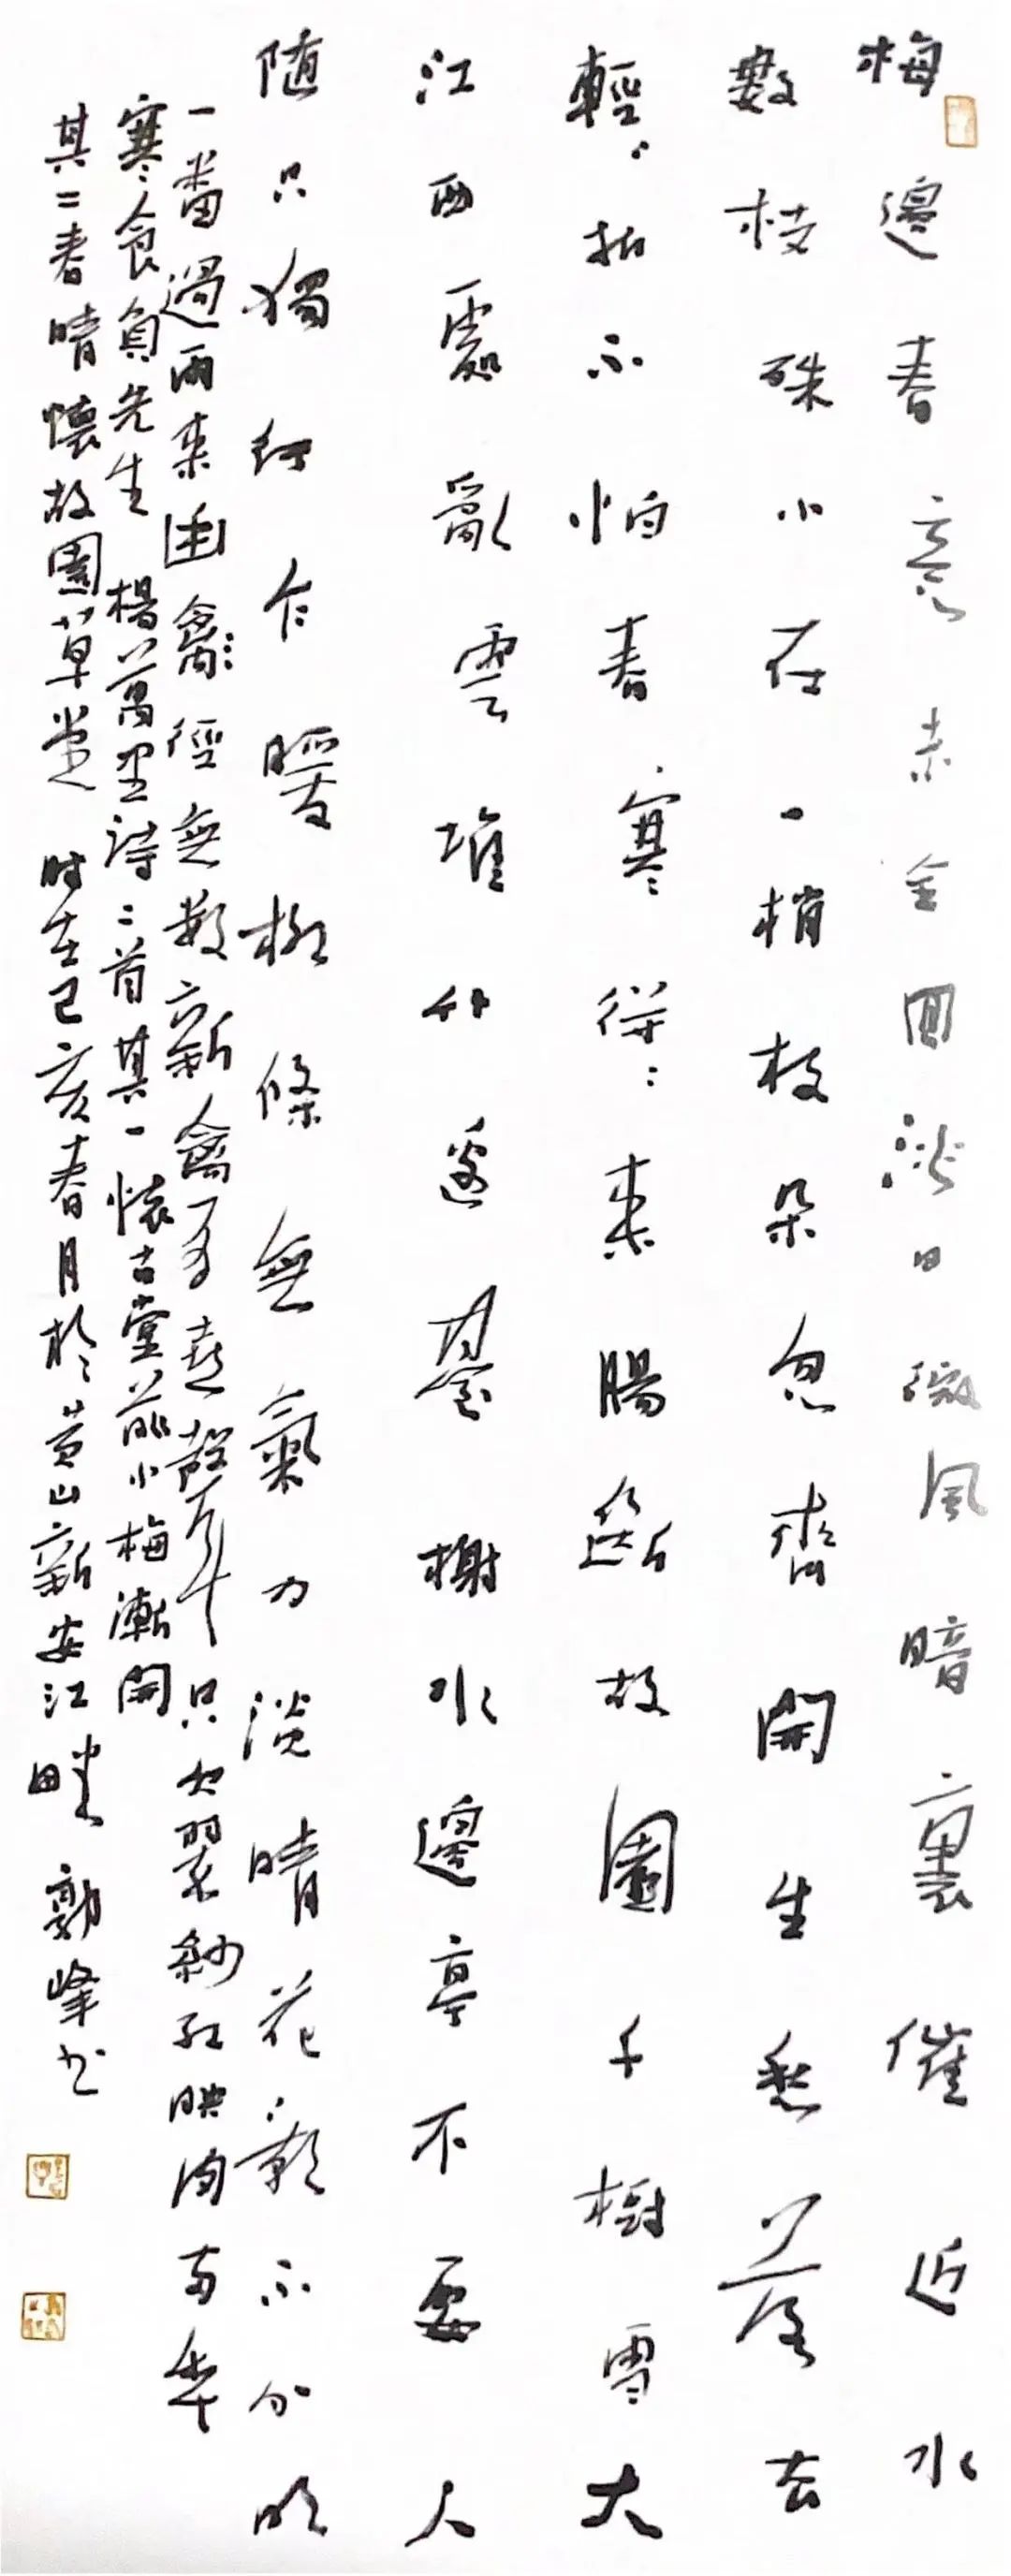 梅邊春意未全回淡日微風暗裏催近水
數枝殊小在一梢枝朵忽齊開生愁落去
輕輕拈不怕春寒得得来腸斷故園千樹雪大
江西處亂雲堆竹邊臺榭水邊亭不要人
随只獨行乍暖柳條無氣力淡晴花影不分明
一番過雨来幽禽徑無數新禽有喜聲只欠翠紗紅映肉兩年
寒食負先生 楊萬里詩二首其一懷古堂前小梅漸開
其二春晴懷故園草堂 时在己亥春月於黄山新安江畔 郭峰书